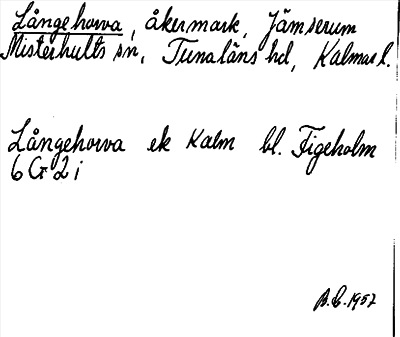 Långehorva, åkermark, Jämserum
Misterhults sn, Tunaläns hd, Kalmar l.
Långehorva ek Kalm bl. Figeholm
6 G 2 i
B.C. 1957